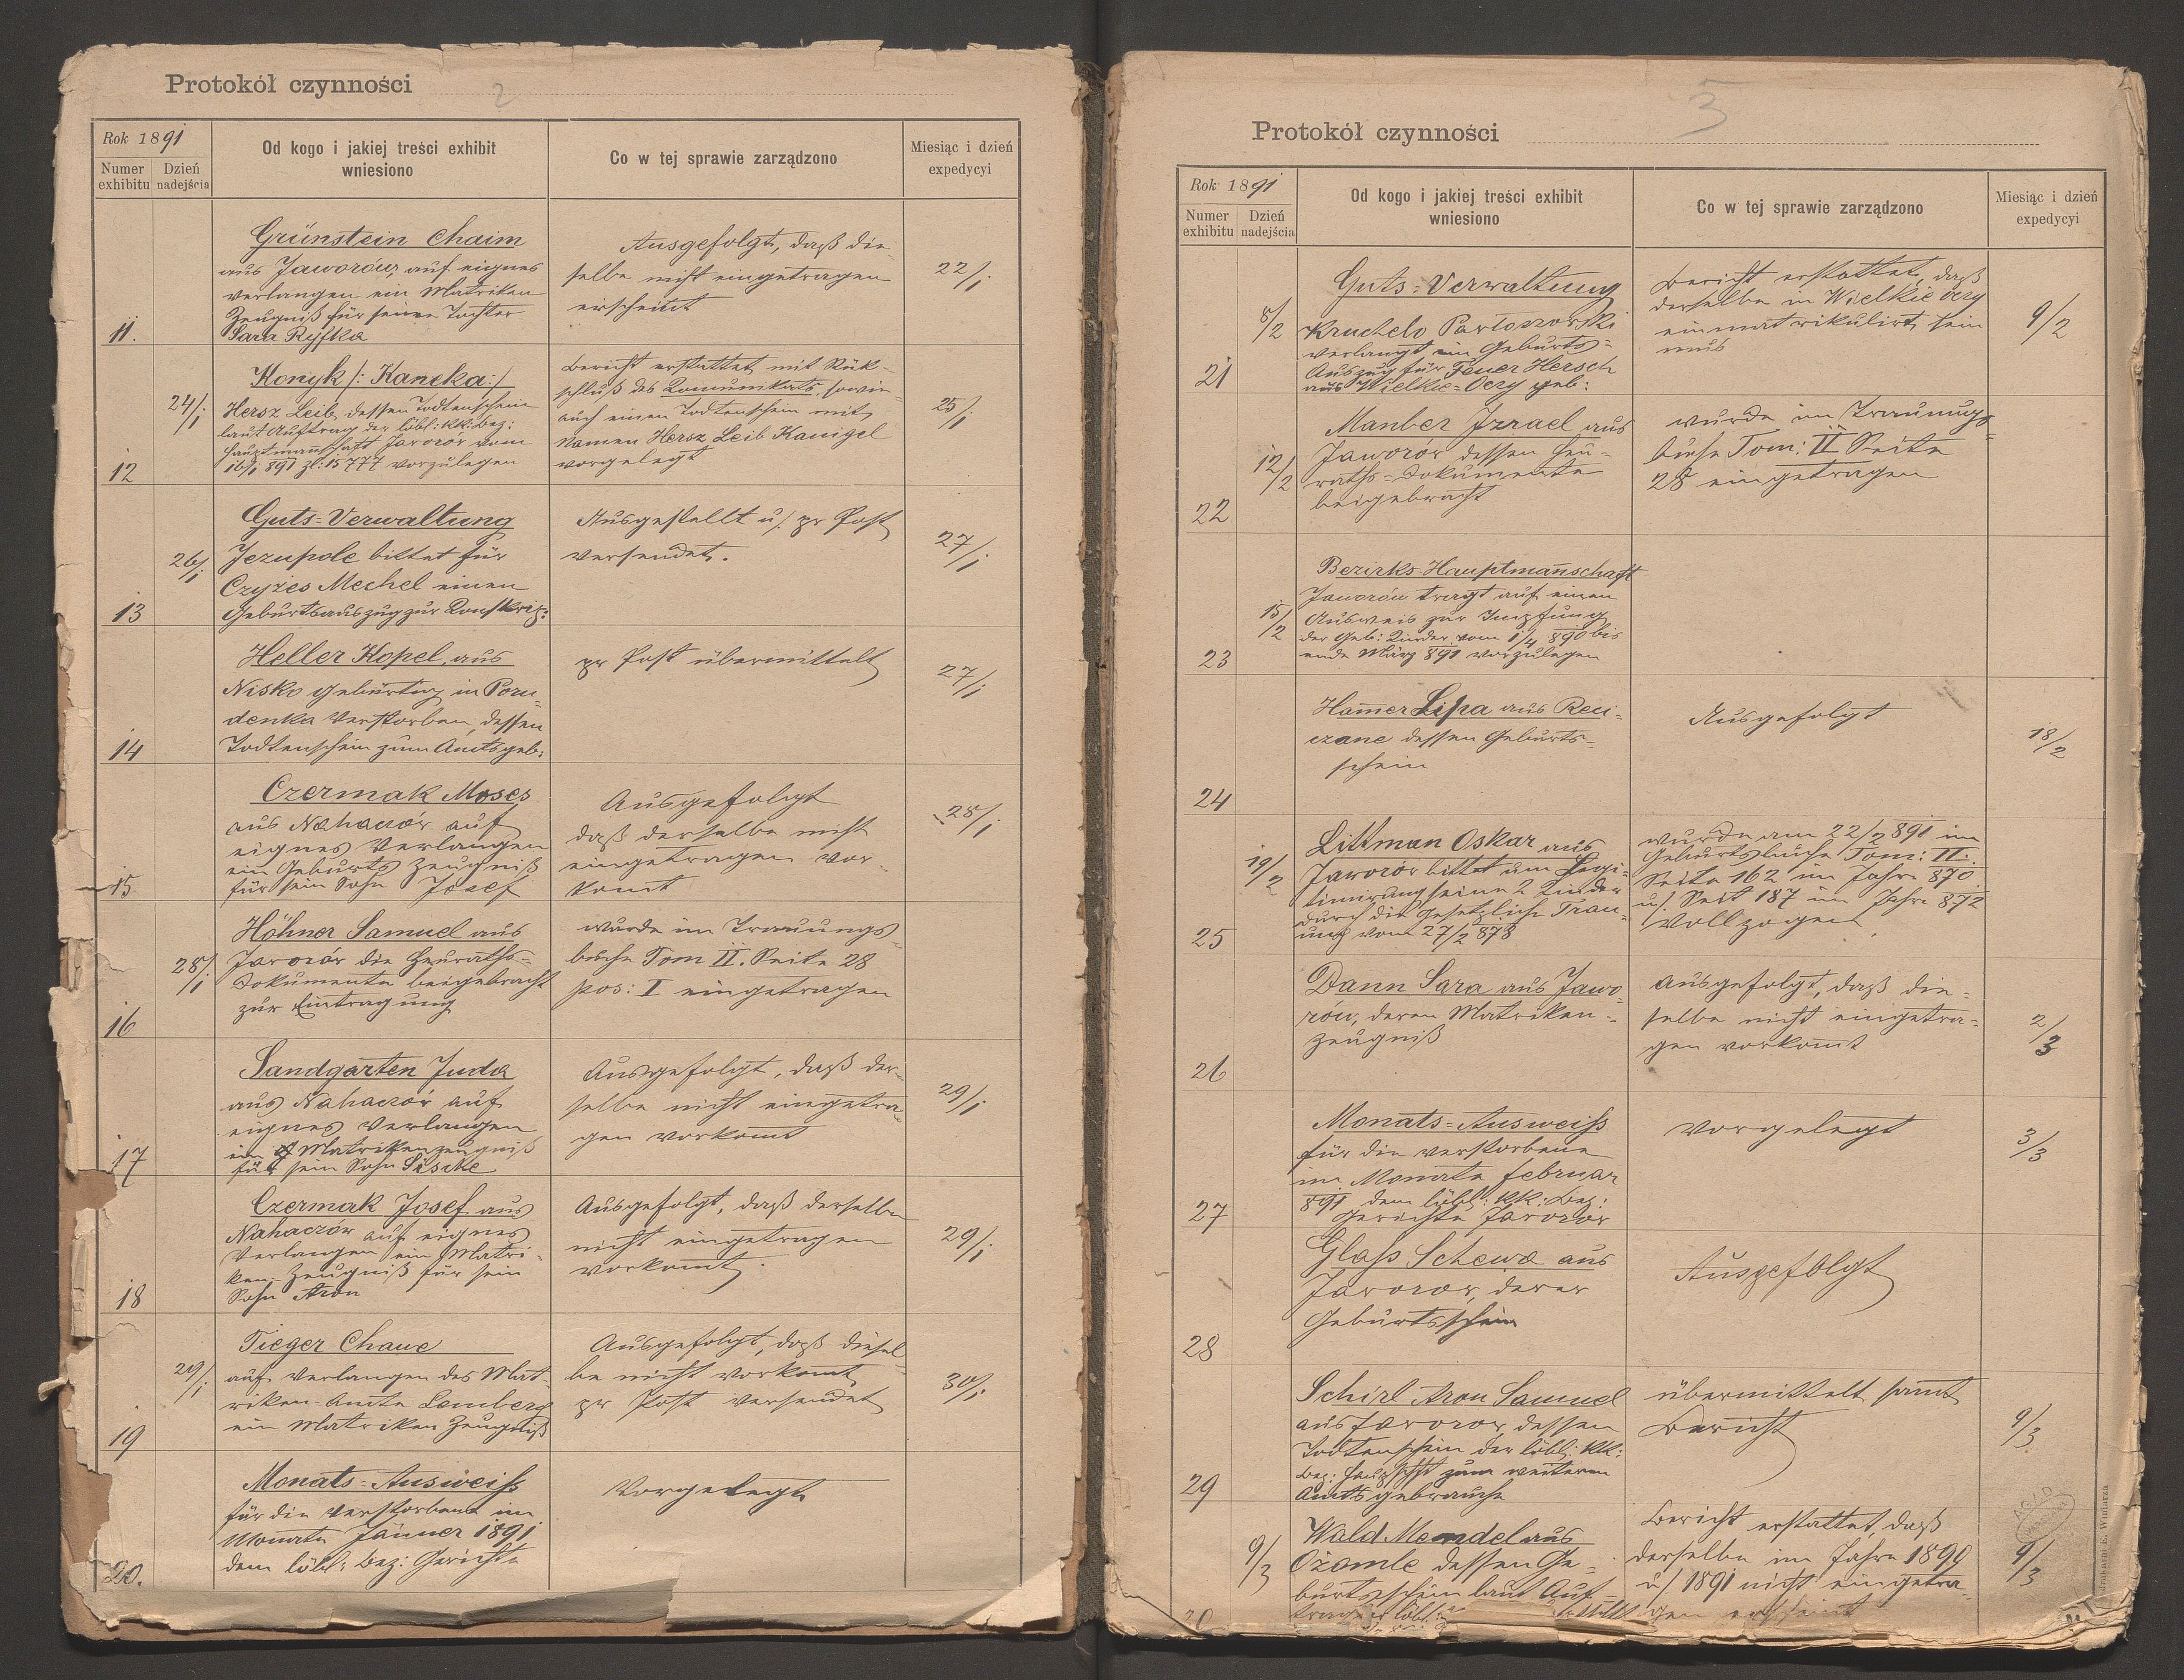 Protokół czynności
2
Rok 1891
Numer exhibitu
Dzień nadejścia
Od kogo i jakiej treści exhibit
wniesiono
Co w tej sprawie zarządzono
Miesiąc i dzień
expedycyi
11.
Grünstein Chaim
aus Jaworów auf eignes
verlangen ein Matriken
Zeugniß für seine Tochter
Sara Ryfka
Ausgefolgt, daß die
selbe nicht eingetragen
erscheint
22/1
12
24/1
Konyk /: Kaneka:/
Hersz Leib, dessen Todtenschein
laut Auftrag der löbl: kk: Bez:
Hauptmannschaft Jaworów vom
16/1 891 zl: 15777 vorzulegen
Bericht erstattet mit Rük-
schluß des Komunikats, sowie
auch einen Todtenschein mit
Namen Hersz Leib Kanigel
vorgelegt
25/1
13
26/1
Guts-Verwaltung
Jezupole bittet für
Czyżes Mechel einen
Geburtsauszug zur Konskrip:
Ausgestellt u/ pr Post
versendet.
27/1
14
Heller Kopel, aus
Nisko gebürtig in Poru-
denka Verstorben, dessen
Todtenschein zum Amtsgeb:
pr Post übermittelt
27/1
15
Czermak Moses
aus Nahaczów auf
eignes Verlangen
ein Geburts Zeugniß
für sein Sohn Josef
Ausgefolgt
daß derselbe nicht
eingetragen vor-
komt
28/1
16
28/1
Höhner Samuel aus
Jaworów die Heuraths-
Dokumente beigebracht
zur Eintragung
wurde im Trauungs-
buche Tom II. Seite 28
pos: I eingetragen
17
Sandgarten Juda
aus Nahaczów auf
eignes Verlangen
ein Matrikenzeugniß
für sein Sohn Sische
Ausgefolgt, daß der-
selbe nicht eingetra-
gen vorkomt
29/1
18
Czermak Josef aus
Nahaczów auf eignes
Verlangen ein Matri-
ken-Zeugniß für sein
Sohn Aron
Ausgefolgt, daß derselbe
nicht eingetragen
vorkomt.
29/1
19
29/1
Tieger Chane
auf Verlangen des Mat-
riken-Amte Lemberg
ein Matriken Zeugniß
Ausgefolgt, daß diesel-
be nicht vorkomt
pr Post versendet
30/1
20.
Monats-Ausweiß
für die Verstorbene im
Monate Jänner 1891
dem löbl: Bez: Gerichte
Vorgelegt
Protokół czynności
3
Rok 1891
Numer exhibitu
Dzień nadejścia
Od kogo i jakiej treści exhibit
wniesiono
Co w tej sprawie zarządzono
Miesiąc i dzień
expedycyi
21
8/2
Guts-Verwaltung
Kruchelo Pawłoszowski
verlangt ein Geburts-
Auszug für Feuer Hersch
aus Wielkie-Oczy geb:
Bericht erstattet, daß
derselbe in Wielkie oczy
einmatrikulirt sein
mus
9/2
22
12/2
Manber Izrael aus
Jaworów dessen Heu-
raths-Dokumente
beigebracht
wurde im Trauungs-
buche Tom: II Seite
28 eingetragen
23
15/2
Bezirks-Hauptmannschaft
Jaworów tragt auf einen
Ausweis zur Impfung
der Geb: Kinder vom 1/4 890 bis
ende März 891 vorzulegen
24
Hammer Lipa aus Reci-
czane dessen Geburts-
schein
Ausgefolgt
18/2
25
19/2
Littman Oskar aus
Jaworów bittet um Legi-
timirung seine 2 Kinder
durch die Gesetzliche Trau-
ung vom 27/2 878
wurde am 22/2 891 im
Geburtsbuche Tom: II.
Seite 162 im Jahre 870
u/ Seit 187 im Jahre 872
Vollzogen
26
Dann Sara aus Jawo-
rów, deren Matriken-
Zeugniß
Ausgefolgt, daß die-
selbe nicht eingetra-
gen vorkomt
2/3
27
Monats-Ausweiss
für die verstorbene
im Monate februar
891 dem löbl: kk: Bez:
Gerichte Jaworów
Vorgelegt
3/3
28
Glaß Schewa aus
Jaworow, derer
Geburtsschein
Ausgefolgt
29
Schirl Aron Samuel
aus Jaworow, dessen
Todtenschein der löbl: kk:
Bez: zum weiteren
Amtsgebrauche
übermittelt samt
Bericht
9/3
9/3
Wald Mendel aus
Ożomle dessen Ge-
burtsschein laut Auf-
Bericht erstattet, daß
derselbe im Jahre 1890
u/ 1891 nicht eingetra-
gen erscheint
9/3